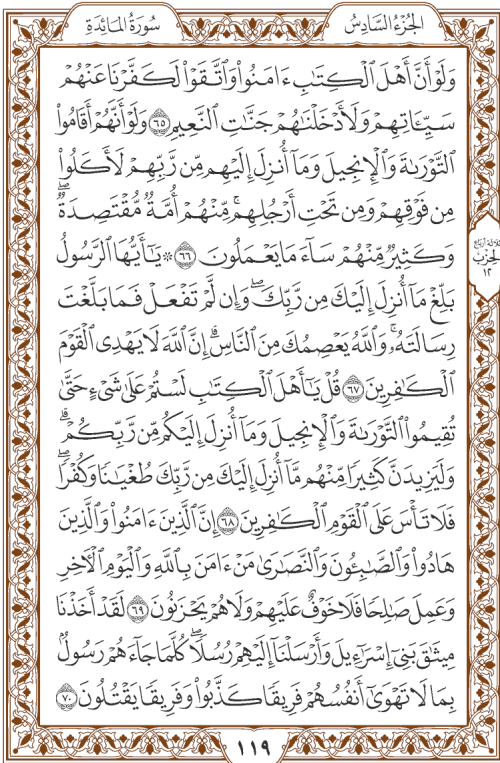 الجُزْءُ السَّادِسُ
سُورَةُ المَائِدَةِ
وَلَوْ أَنَّ أَهْلَ ٱلْكِتَٰبِ ءَامَنُوا۟ وَٱتَّقَوْا۟ لَكَفَّرْنَا عَنْهُمْ
سَيِّـَٔاتِهِمْ وَلَأَدْخَلْنَٰهُمْ جَنَّٰتِ ٱلنَّعِيمِ ٦٥ وَلَوْ أَنَّهُمْ أَقَامُوا۟
ٱلتَّوْرَىٰةَ وَٱلْإِنجِيلَ وَمَآ أُنزِلَ إِلَيْهِم مِّن رَّبِّهِمْ لَأَكَلُوا۟
مِن فَوْقِهِمْ وَمِن تَحْتِ أَرْجُلِهِم ۚ مِّنْهُمْ أُمَّةٌ مُّقْتَصِدَةٌ ۖ
وَكَثِيرٌ مِّنْهُمْ سَآءَ مَا يَعْمَلُونَ ٦٦ ۞ يَٰٓأَيُّهَا ٱلرَّسُولُ
بَلِّغْ مَآ أُنزِلَ إِلَيْكَ مِن رَّبِّكَ ۖ وَإِن لَّمْ تَفْعَلْ فَمَا بَلَّغْتَ
رِسَالَتَهُۥ ۚ وَٱللَّهُ يَعْصِمُكَ مِنَ ٱلنَّاسِ ۗ إِنَّ ٱللَّهَ لَا يَهْدِى ٱلْقَوْمَ
ٱلْكَٰفِرِينَ ٦٧ قُلْ يَٰٓأَهْلَ ٱلْكِتَٰبِ لَسْتُمْ عَلَىٰ شَىْءٍ حَتَّىٰ
تُقِيمُوا۟ ٱلتَّوْرَىٰةَ وَٱلْإِنجِيلَ وَمَآ أُنزِلَ إِلَيْكُم مِّن رَّبِّكُمْ ۗ
وَلَيَزِيدَنَّ كَثِيرًا مِّنْهُم مَّآ أُنزِلَ إِلَيْكَ مِن رَّبِّكَ طُغْيَٰنًا وَكُفْرًا ۖ
فَلَا تَأْسَ عَلَى ٱلْقَوْمِ ٱلْكَٰفِرِينَ ٦٨ إِنَّ ٱلَّذِينَ ءَامَنُوا۟ وَٱلَّذِينَ
هَادُوا۟ وَٱلصَّٰبِـُٔونَ وَٱلنَّصَٰرَىٰ مَنْ ءَامَنَ بِٱللَّهِ وَٱلْيَوْمِ ٱلْـَٔاخِرِ
وَعَمِلَ صَٰلِحًا فَلَا خَوْفٌ عَلَيْهِمْ وَلَا هُمْ يَحْزَنُونَ ٦٩ لَقَدْ أَخَذْنَا
مِيثَٰقَ بَنِىٓ إِسْرَٰٓءِيلَ وَأَرْسَلْنَآ إِلَيْهِمْ رُسُلًا ۖ كُلَّمَا جَآءَهُمْ رَسُولٌۢ
بِمَا لَا تَهْوَىٰٓ أَنفُسُهُمْ فَرِيقًا كَذَّبُوا۟ وَفَرِيقًا يَقْتُلُونَ ٧٠
ثلاثة أرباع
الحِزْب
١٢
١١٩